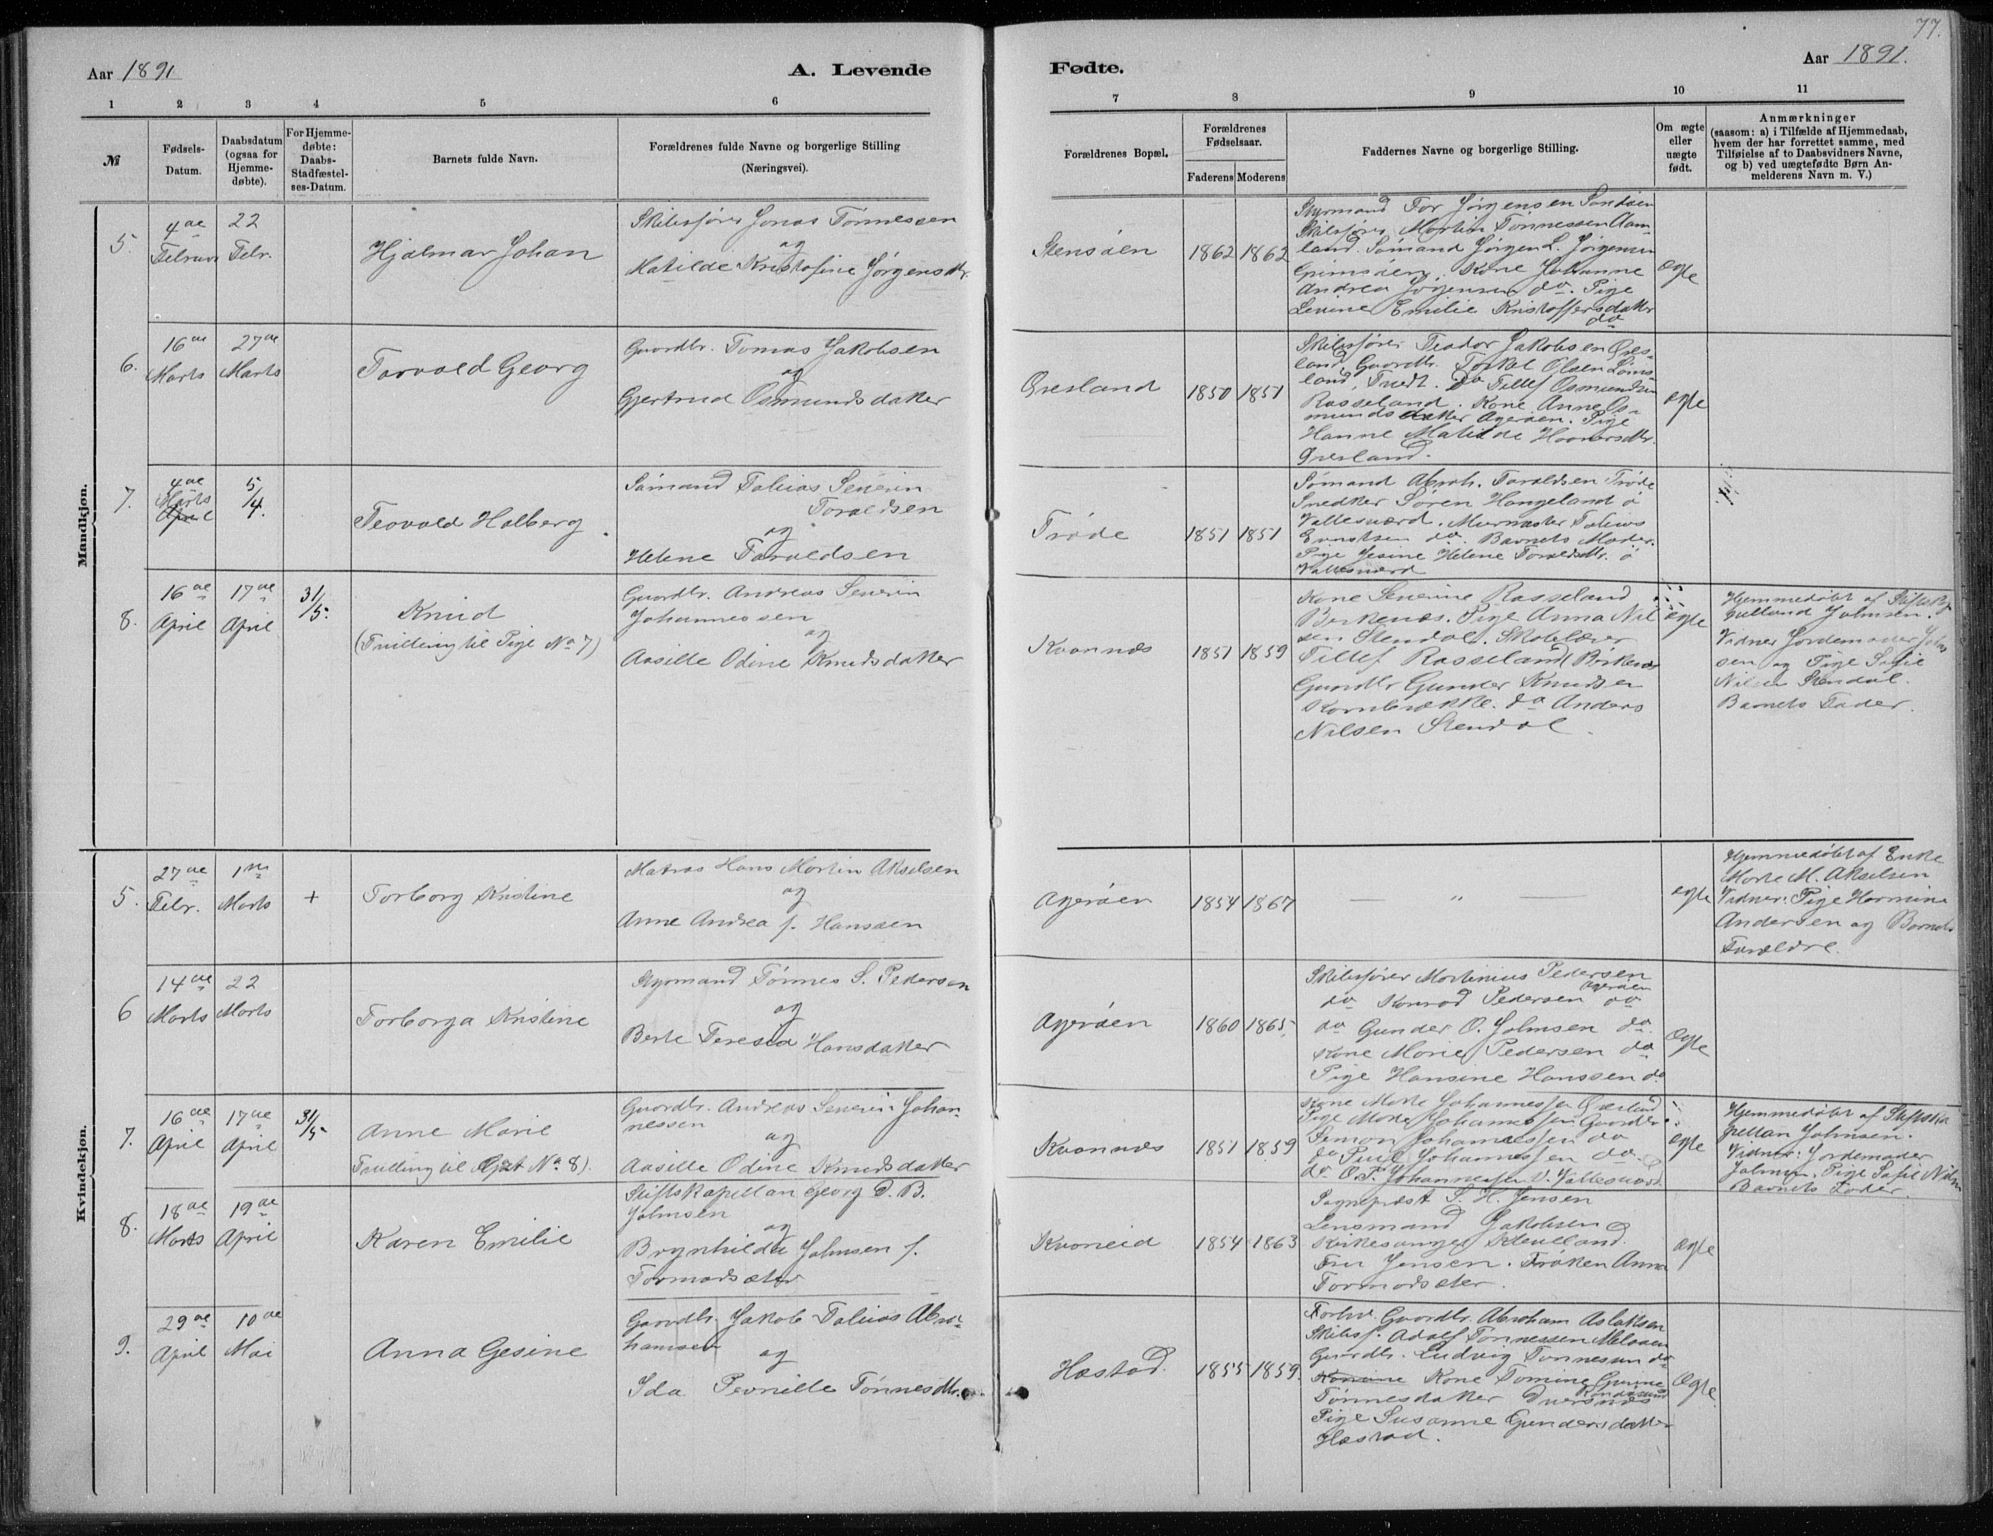 77.
Aar 1891
A. Levende
Fødte.
Aar 1891.
1 2 3 4 5 6 7 8 9 10 11
№
Fødsels-
Datum.
Daabsdatum
(ogsaa for
Hjemme-
døbte).
For Hjemme-
døbte:
Daabs-
Stadfæstel-
ses-Datum.
Barnets fulde Navn.
Forældrenes fulde Navne og borgerlige Stilling
(Næringsvei).
Forældrenes Bopæl.
Forældrenes
Fødselsaar.
Faderens Moderens
Faddernes Navne og borgerlige Stilling.
Om ægte
eller
uægte
født.
Anmærkninger
(saasom: a) i Tilfælde af Hjemmedaab,
hvem der har forrettet samme, med
Tilføielse af to Daabsvidners Navne,
og b) ved uægtefødte Børn An-
melderens Navn m. V.)
Mandkjøn.
5.
4de
Februar
22
Febr.
Hjalmar Johan
Skibsfører Jonas Tønnessen
og
Matilde Kristofine Jørgensdtr.
Stensøen
1862 1862
Styrmand Tor Jørgensen
Skibsfører Martin Tønnessen Aam-
land. Sømand Jørgen L. Jørgensen
Grimsøen. Kone Johanne
Andrea Jørgensen do. Pige
Levine Emilie Kristoffersdatter
do
ægte
6.
16de
Marts
27de
Marts
Torvald Georg
Gaardbr. Tomas Jakobsen
og
Gjertrud Osmundsdatter
Øresland
1850 1851
Skibsfører Teodor Jakobsen Øres-
land, Gaardbr. Torkel Olsen
land, do Tellef Osmundsen
Rosseland. Kone Anne Os-
mundsdatter Agerøen. Pige
Hanne Matilde
Øresland.
ægte
7.
4de
Marts
April
5
/4.
Teovald Holberg
Sømand Tobias Severin
Toraldsen
og
Helene Taraldsen
Trøde
1851 1851
Sømand Abrah. Taraldsen Trøde
Snedker Søren Hangeland ö
Vallesværd. Murmester Tobias
Evertsen do. Barnets Moder.
Pige Jesine Helene ö
Vallesværd
8.
16de
April
17de
April
31
/5.
Knud
(Tvilling til Pige No 7)
Gaardbr. Andreas Severin
Johannessen
og
Aasille Odine Knudsdatter
Kvannæs
1851 1859
Kone Severine Rosseland
Birkenæs. Pige Anna Nil
sen Stendal. Skolelærer
Tellef Rosseland Birkenæs
Gaardbr Gunder Knudsen
Kornbrække. do Anders
Nilsen Stendal.
ægte
Hjemmedøbt af Stiftska
pelland Johnsen.
Vidner Jordemoder John
sen og Pige Sofie
Nilsen Stendal.
Barnets Fader.
Kvindekjøn.
5.
27de
Febr.
1ste
Marts
+
Torborg Kristine
Matros Hans Martin Akselsen
og
Anne Andrea f. Hanssen
Agerøen
1854 1867
— „ —
ægte
Hjemmedøbt af Enke
Marte M. Akselsen
Vidner. Pige Hermine
Andersen og Barnets
Forældre.
6
14de
Marts
22
Marts
Torborga Kristine
Styrmand Tønnes S. Pedersen
og
Berte Teresia Hansdatter
Agerøen
1860 1865
Skibsfører Martinius Pedersen
Agerøen
do Konrad Pedersen do
do Gunder O. Johnsen do.
Kone Marie Pedersen do
Pige Hansine Hanssen do
ægte
7.
16de
April
17de
April
31
/5
Anne Marie
Tvilling til Gut No 8).
Gaardbr. Andreas Severin Johan
nessen
og
Aasille Odine Knudsdatter
Kvannæs
1851 1859
Kone Marte Johannessen Øresland
Pige Marte Johannessen Gaardbr
Simon Johannessen do
do Paul Johannessen do.
do O. P. Johannessen V. Vallesværd
ægte
Hjemmedøbt af Stiftska
pellan Johnsen.
Vidner: Jordemoder
Johnsen, Pige Sofie Nilsen
Barnets Fader.
8.
18de
Marts
19de
April
Karen Emilie
Stiftskapellan Georg D. B.
Johnsen
og
Brynhilda Johnsen f.
Tormodsæter
Kvaneid
1854 1863
Sogneprest S. H. Jensen
Lensmand Jakobsen
Kirkesanger Kleveland.
Fru Jensen. Frøken Anna
Tormodsæter.
ægte
9.
29de
April
10de
Mai
Anna Gesine
Gaardbr. Jakob Tobias Abra-
hamsen
og
Ida Pernille Tønnesdtr.
Hæstad.
1855 1859.
Forhv. Gaardbr. Abraham Aslaksen
Skibsf. Adolf Tønnessen
Gaardbr. Ludvig Tønnessen do
Kone Tomine Gurine
Tønnesdatter
Pige Susanne Gundersdatter
Hæstad.
Ægte